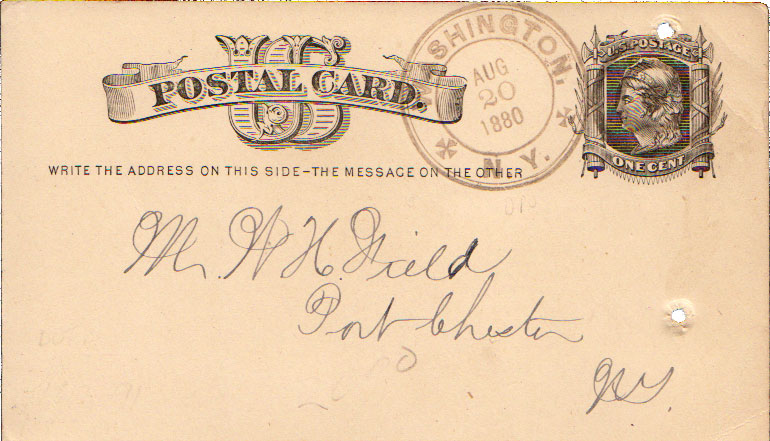 US
POSTAL CARD.
WRITE THE ADDRESS ON THIS SIDE–THE MESSAGE ON THE OTHER
WASHINGTON,
AUG
20
1880
N. Y.
U.S. POSTAGE
ONE CENT
Mr. W. H. Field
Port Chester
N.Y.